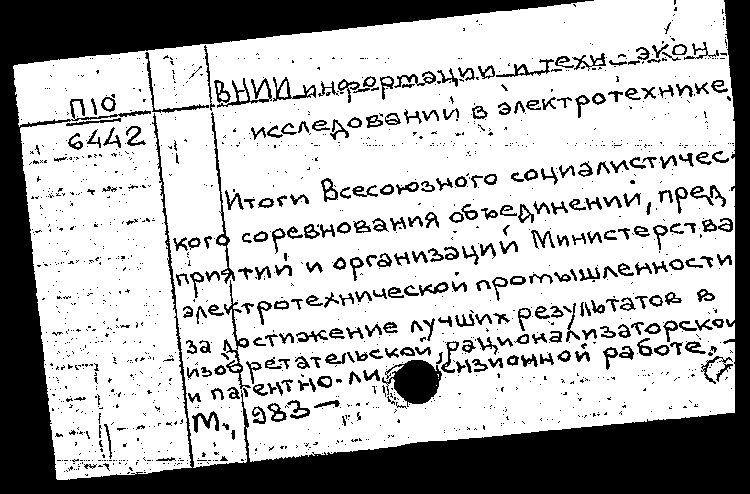 П10
6442
ВНИИ информации и техн.-экон.
исследований в электротехнике
Итоги Всесоюзного социалистичес-
кого соревнования объединений, пред-
приятий и организаций Министерства
электротехнической промышленности
за достижение лучших результатов в
изобретательской, рационализаторской
и патентно-ли ензионной работе. -
М., 1983 -